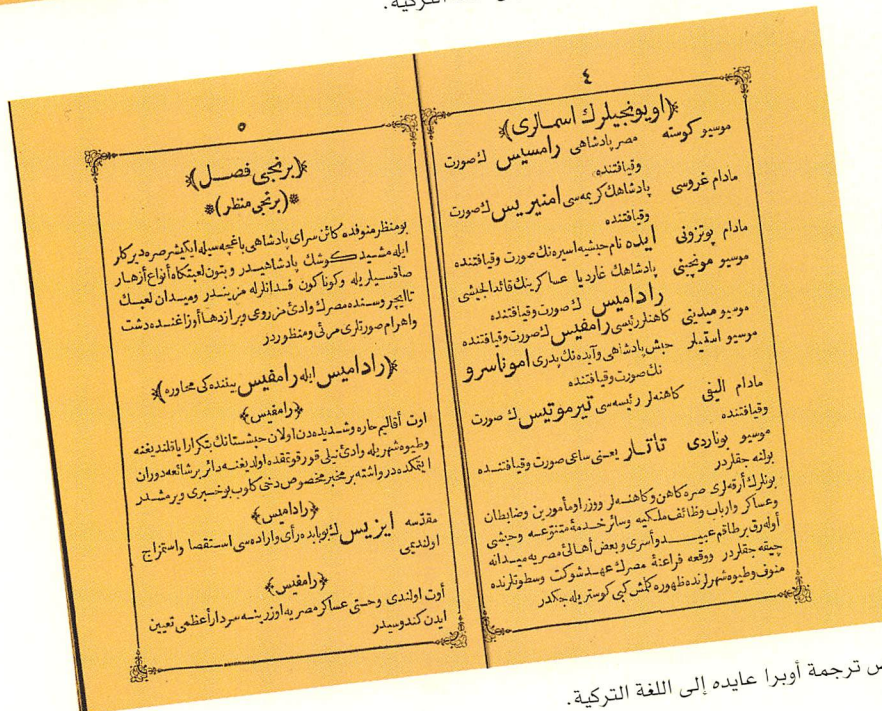 التركية.
٤
﴿اويونجيلرك اسمالرى﴾
موسيو كوسته مصر پادشاهى رامسيس ك صورت
وقيافتنده
مادام غروسى پادشاهك كريمه سى امنيريس ك صورت
وقيافتنده
مادام پوتزونى ايده نام حبشيه اسيره نك صورت وقيافتنده
موسيو مونجينى پادشاهك غارديا عساكرينك قائد الجيشى
راداميس ك صورت وقيافتنده
موسيو ميدينى كاهنلر رئيسى رامفيس ك صورت وقيافتنده
موسيو استيلر حبش پادشاهى وآيده نك پدرى اموناسرو
نك صورت وقيافتنده
مادام اليفى كاهنه لر رئيسه سى تيرموتيس ك صورت
وقيافتنده
موسيو بوناردى تأتار يعنى ساعى صورت وقيافتنده
بولنه جقلردر
بونلرك أرقه لرى صره كاهن وكاهنه لر ووزرا ومأمورين وضابطان
وعساكر وارباب وظائف ملكيه وسائر خدمهٔ متنوعه وحبشى
أوله رق برطاقم عبيد وأسرى وبعض أهالئ مصريه ميدانه
چيقه جقلردر ووقعه فراعنهٔ مصرك عهد شوكت وسطوتلرنده
منوف وطيوه شهرلرنده ظهوره كلمش كبى كوستريله جكدر
٥
﴿برنجى فصل﴾
﴿برنجى منظر﴾
بو منظر منوفده كائن سراى پادشاهى باغچه سيله ايكيشر صره ديركلر
ايله مشيد كوشك پادشاهيدر وبتون لعبتكاه أنواع أزهار
صاقسيلريله وكوناكون فدانلرله مزيندر وميدان لعبك
تا ايچروسنده مصرك وادئ مزروعى وبراز دها أوزاغنده دشت
واهرام صورتلرى مرئى ومنظوردر
﴿راداميس ايله رامفيس بيننده كى محاوره﴾
﴿رامفيس﴾
اوت أقاليم حاره وشديده دن اولان حبشستانك تكرار اياقلنديغنه
وطيوه شهريله وادئ نيلى قورقوتمقده اولديغنه دائر بر شائعه دوران
ايتمكده در واشته بر مخبر مخصوص دخى كلوب بو خبرى ويرمشدر
﴿راداميس﴾
مقدسه ايزيس ك بو بابده رأى واراده سى استقصا واستمزاج
اولنديمى
﴿رامفيس﴾
أوت اولندى وحتى عساكر مصريه اوزرينه سردار أعظمى تعيين
ايدن كندوسيدر
ترجمة أوبرا عايده إلى اللغة التركية.